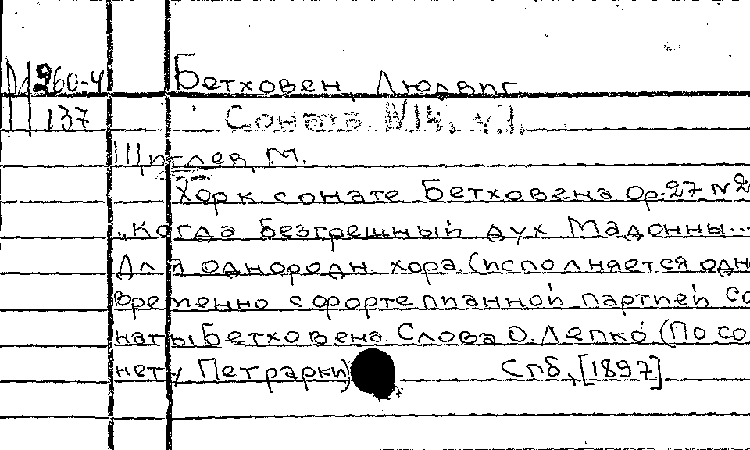 М 260-4 Бетховен, Людвиг
137 Соната №14. ч.1.
Щиглев, М.
Хор к сонате Бетховена Op.27 №2
„Когда безгрешный дух Мадонны...
Для однородн. хора (исполняется одно
временно с фортепианной партией со
наты Бетховена Слова О.Лепко (По со
нету Петрарки)
Спб, [1897]